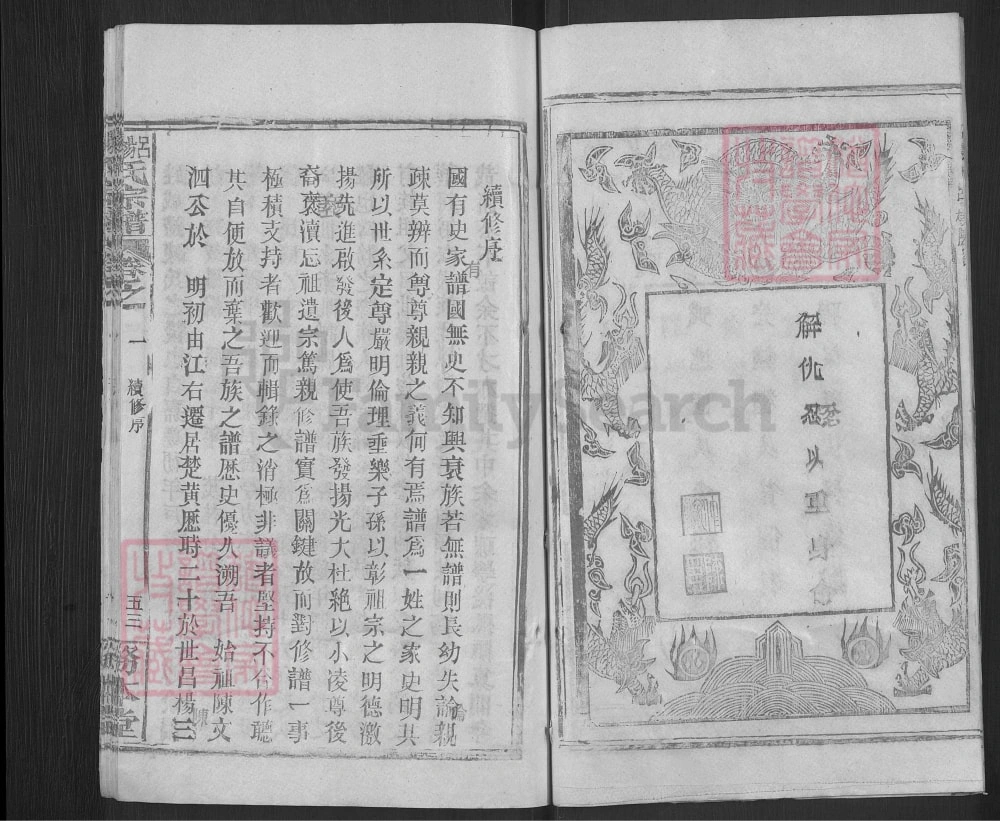 解仇忿以重身命
續修序
國有史家有譜國無史不知興衰族若無譜則長幼失論親
疎莫辨而尊尊親親之義何有焉譜爲一姓之家史明其
所以世系定尊嚴明倫理垂樂子孫以彰祖宗之明德激
揚先進啟發後人爲使吾族發揚光大杜絶以小凌尊後
裔褻瀆忘祖遺宗篤親修譜實爲關鍵故而對修譜一事
極積支持者歡迎而輯錄之消極非議者堅持不合作聽
其自便放而棄之吾族之譜歷史優久溯吾 始祖陳文
泗公於 明初由江右遷居楚黃歷時二十於世昌楊三
氏宗譜
卷之一
續修序
五三
堂
FamilySearch